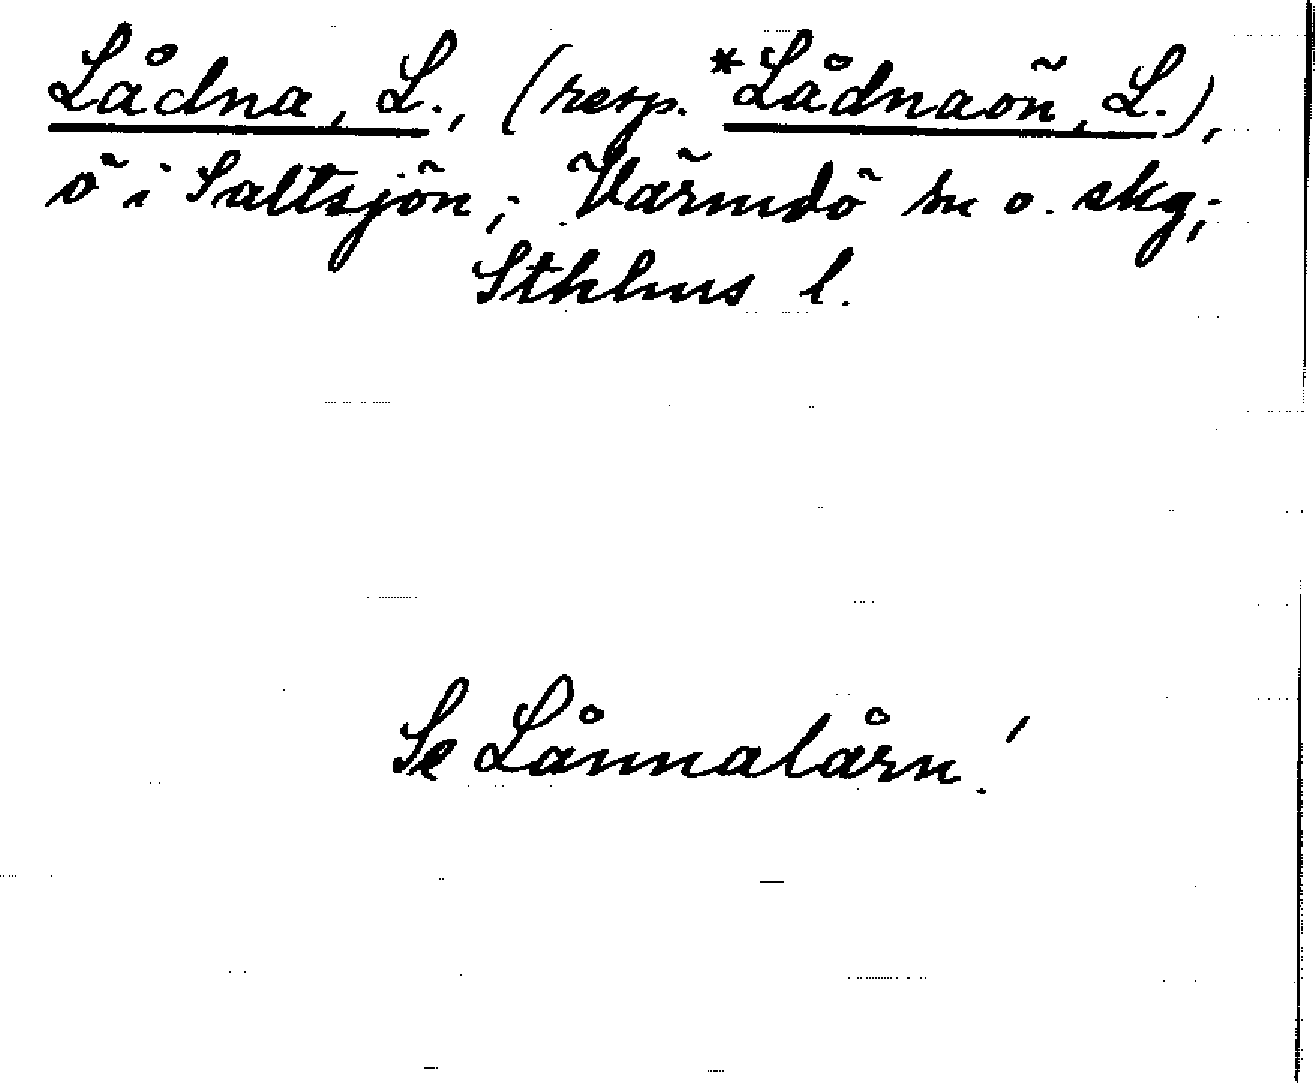 Lådna, L., (resp. *Lådnaön, L.),
ö i Saltsjön; Värmdö sn o. skg;
Sthlms l.
Se Lånnalårn!